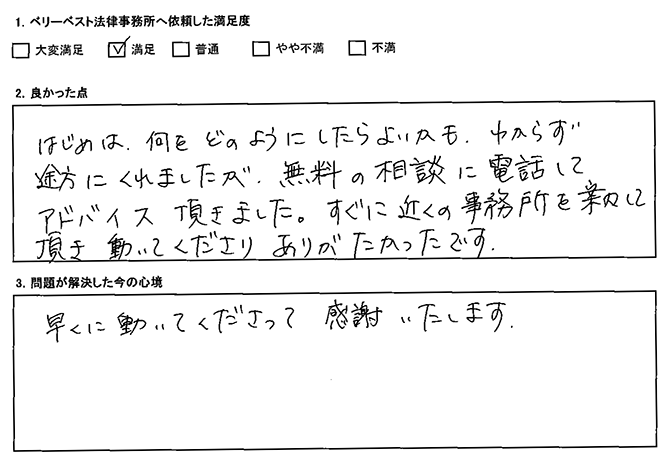 1. ベリーベスト法律事務所へ依頼した満足度
□ 大変満足 ☑ 満足 □ 普通 □ やや不満 □ 不満
2. 良かった点
はじめは、何をどのようにしたらよいかも、わからず
途方にくれましたが、無料の相談に電話して
アドバイス頂きました。すぐに近くの事務所を案内して
頂き動いてくださり ありがたかったです.
3. 問題が解決した今の心境
早くに動いてくださって 感謝いたします.